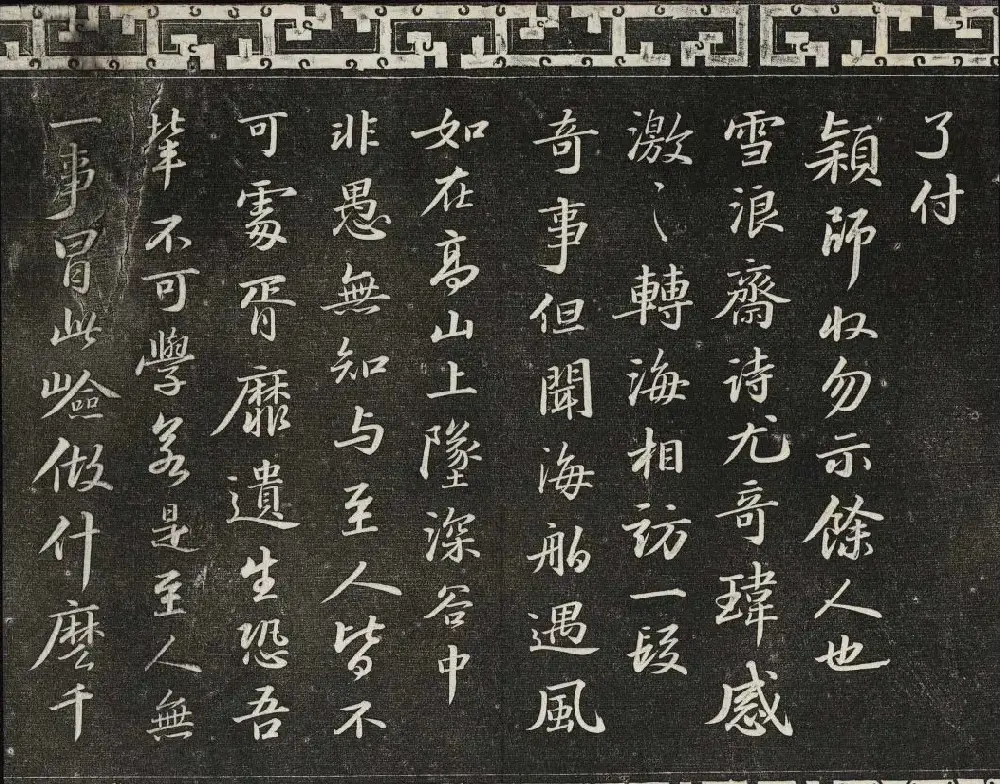 了付
穎師收勿示餘人也
雪浪齋诗尤奇瑋感
激〻轉海相訪一段
奇事但聞海舶遇風
如在高山上墜深谷中
非愚無知与至人皆不
可處胥靡遺生恐吾
輩不可學若是至人無
一事冒此嶮做什麽千